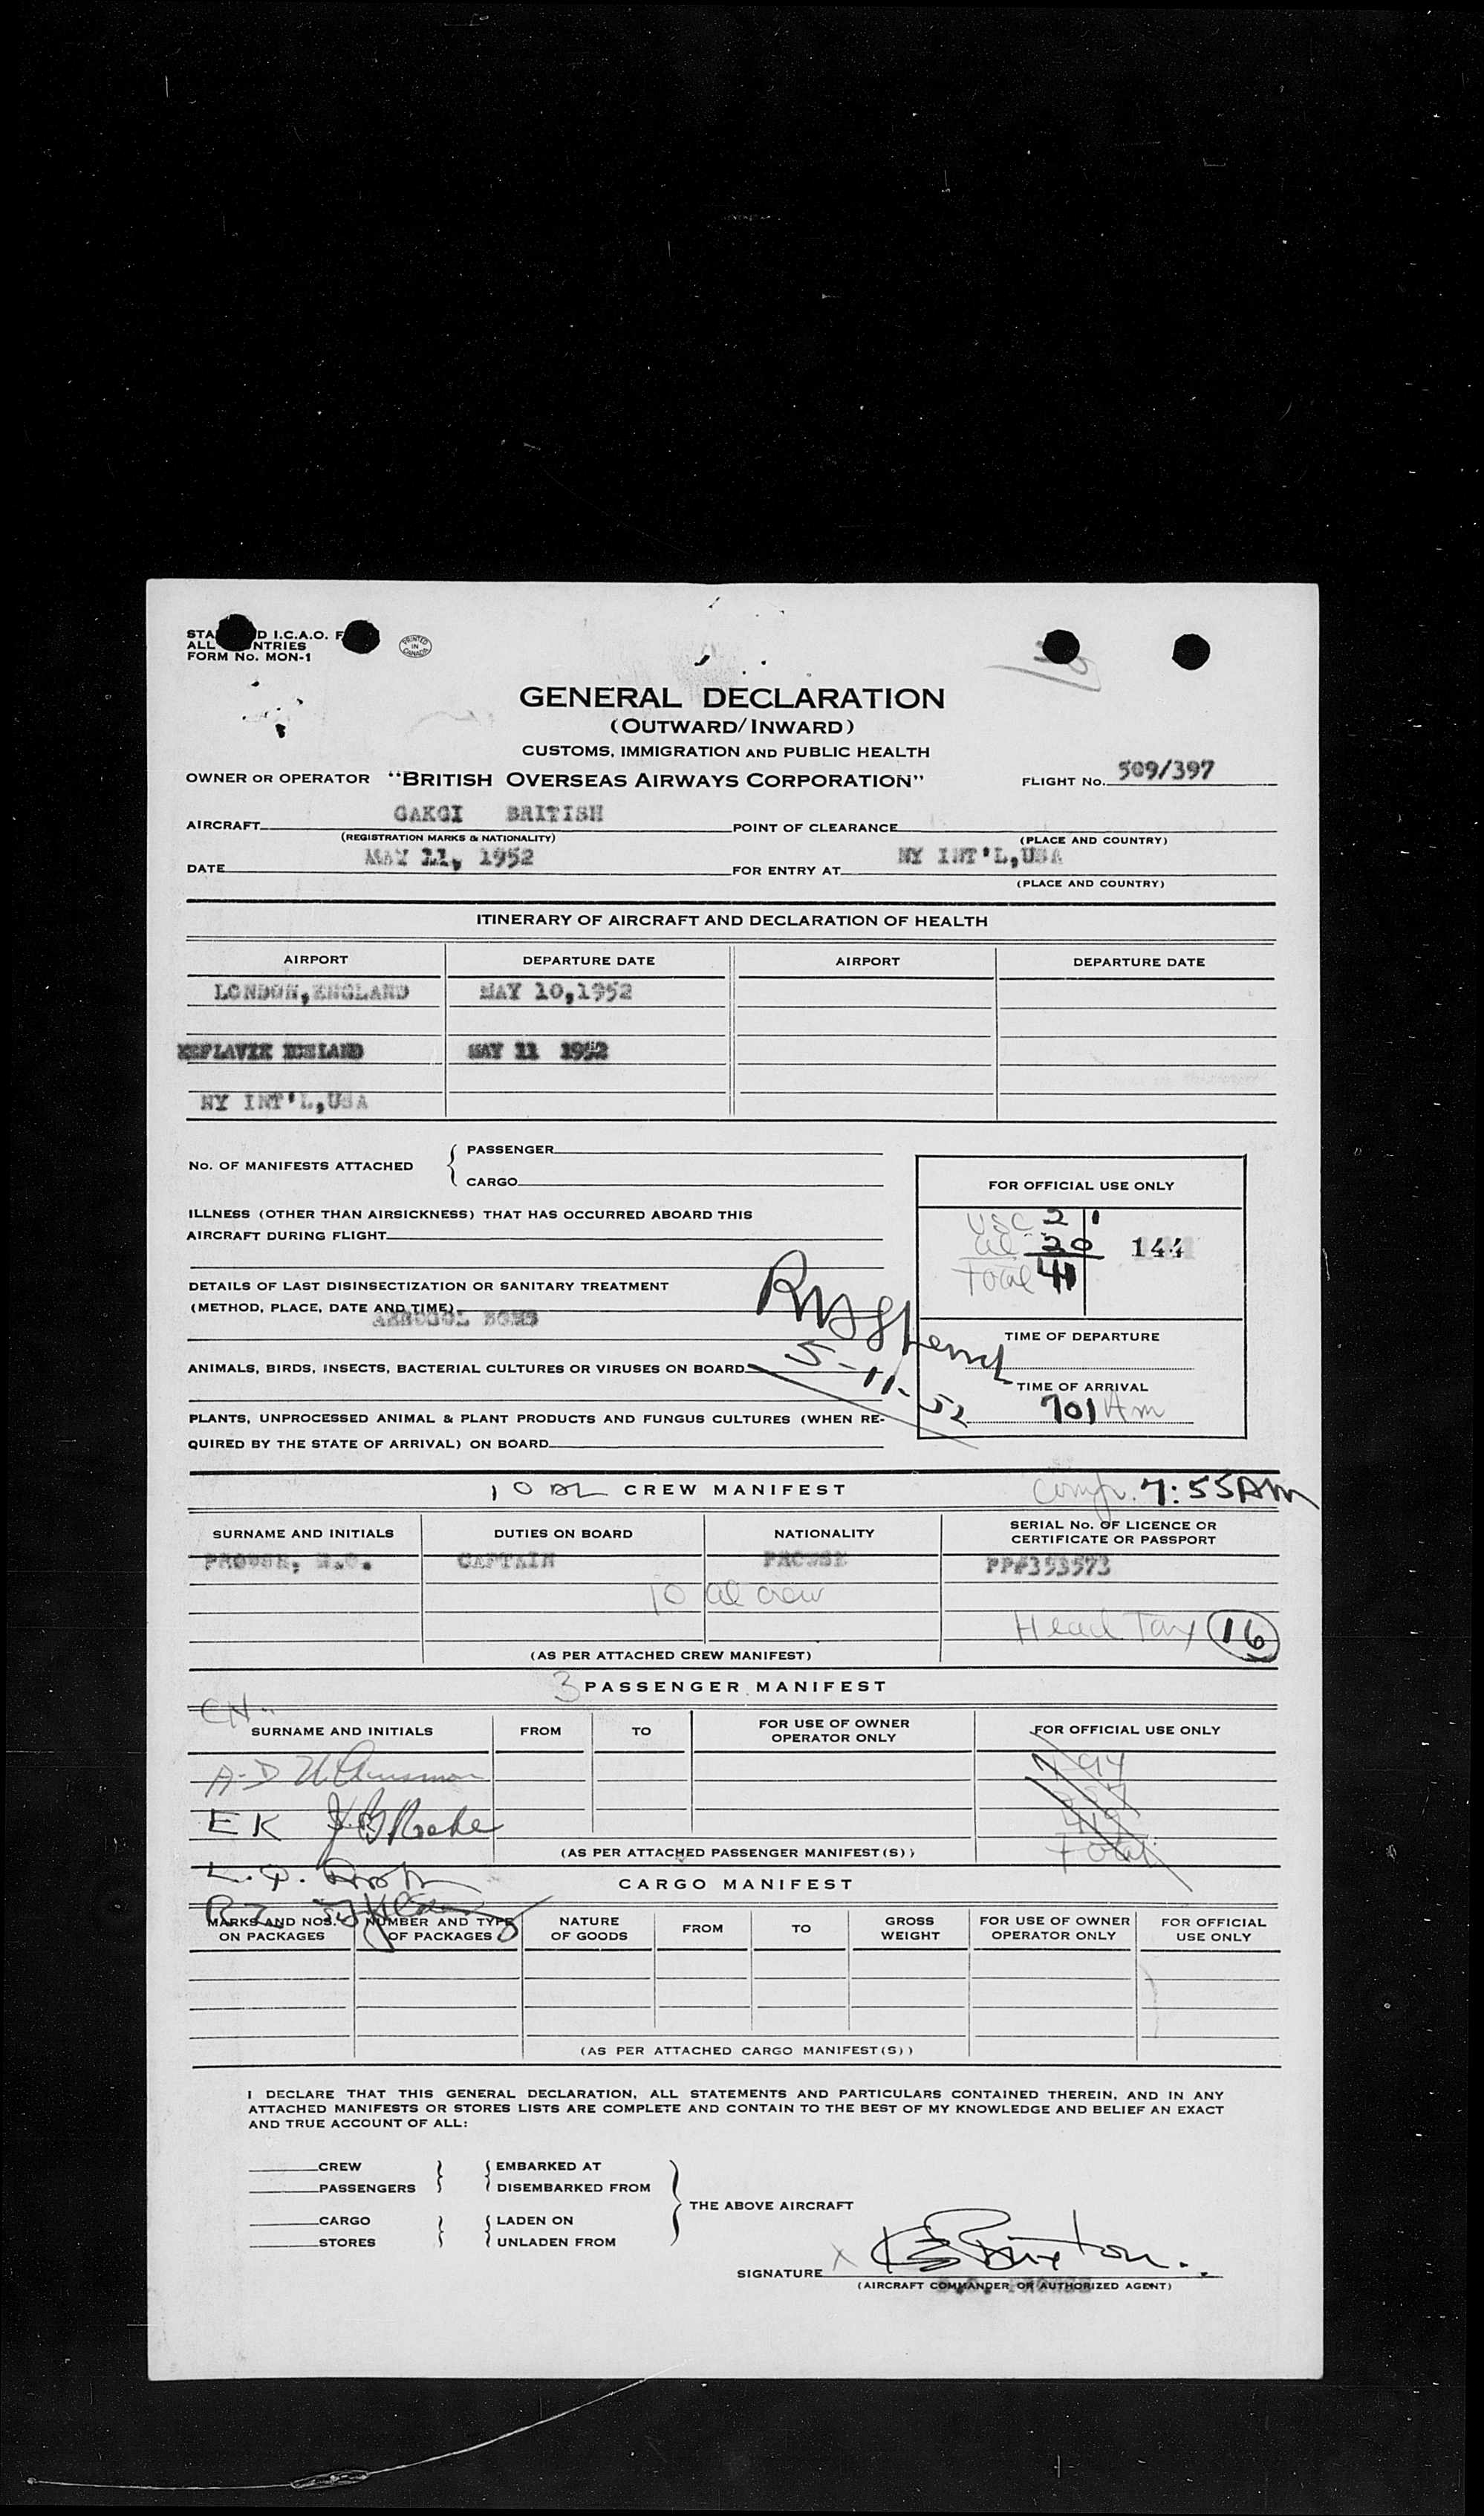 STA D I.C.A.O. F
ALL NTRIES
FORM No. MON-1
PRINTED IN CANADA
GENERAL DECLARATION
(OUTWARD/INWARD)
CUSTOMS, IMMIGRATION AND PUBLIC HEALTH
OWNER OR OPERATOR "BRITISH OVERSEAS AIRWAYS CORPORATION" FLIGHT No. 509/397
AIRCRAFT GAKGI BRITISH POINT OF CLEARANCE
(REGISTRATION MARKS & NATIONALITY) (PLACE AND COUNTRY)
DATE MAY 11, 1952 FOR ENTRY AT NY INT'L,USA
(PLACE AND COUNTRY)
ITINERARY OF AIRCRAFT AND DECLARATION OF HEALTH
AIRPORT DEPARTURE DATE AIRPORT DEPARTURE DATE
LONDON,ENGLAND MAY 10,1952
KEFLAVIK MAY 11 1952
NY INT'L,USA
No. OF MANIFESTS ATTACHED { PASSENGER
CARGO
FOR OFFICIAL USE ONLY
ILLNESS (OTHER THAN AIRSICKNESS) THAT HAS OCCURRED ABOARD THIS
AIRCRAFT DURING FLIGHT
USC 21
al 20 144
Total 41
DETAILS OF LAST DISINSECTIZATION OR SANITARY TREATMENT
(METHOD, PLACE, DATE AND TIME)
AEROSOL BOMB
5-11-52
TIME OF DEPARTURE
ANIMALS, BIRDS, INSECTS, BACTERIAL CULTURES OR VIRUSES ON BOARD
TIME OF ARRIVAL
701 Am
PLANTS, UNPROCESSED ANIMAL & PLANT PRODUCTS AND FUNGUS CULTURES (WHEN RE-
QUIRED BY THE STATE OF ARRIVAL) ON BOARD
10 CREW MANIFEST 7:55AM
SURNAME AND INITIALS DUTIES ON BOARD NATIONALITY SERIAL No. OF LICENCE OR
CERTIFICATE OR PASSPORT
PROWSE, CAPTAIN PROWSE PP#353573
10 al crew
Head Tax 16
(AS PER ATTACHED CREW MANIFEST)
3 PASSENGER MANIFEST
CH
SURNAME AND INITIALS FROM TO FOR USE OF OWNER
OPERATOR ONLY FOR OFFICIAL USE ONLY
A-D
E K
Total
(AS PER ATTACHED PASSENGER MANIFEST(S))
CARGO MANIFEST
MARKS AND NOS.
ON PACKAGES NUMBER AND TYPE
OF PACKAGES NATURE
OF GOODS FROM TO GROSS
WEIGHT FOR USE OF OWNER
OPERATOR ONLY FOR OFFICIAL
USE ONLY
(AS PER ATTACHED CARGO MANIFEST(S))
I DECLARE THAT THIS GENERAL DECLARATION, ALL STATEMENTS AND PARTICULARS CONTAINED THEREIN, AND IN ANY
ATTACHED MANIFESTS OR STORES LISTS ARE COMPLETE AND CONTAIN TO THE BEST OF MY KNOWLEDGE AND BELIEF AN EXACT
AND TRUE ACCOUNT OF ALL:
CREW } { EMBARKED AT
PASSENGERS DISEMBARKED FROM
} THE ABOVE AIRCRAFT
CARGO } { LADEN ON
STORES UNLADEN FROM
SIGNATURE X
(AIRCRAFT COMMANDER OR AUTHORIZED AGENT)